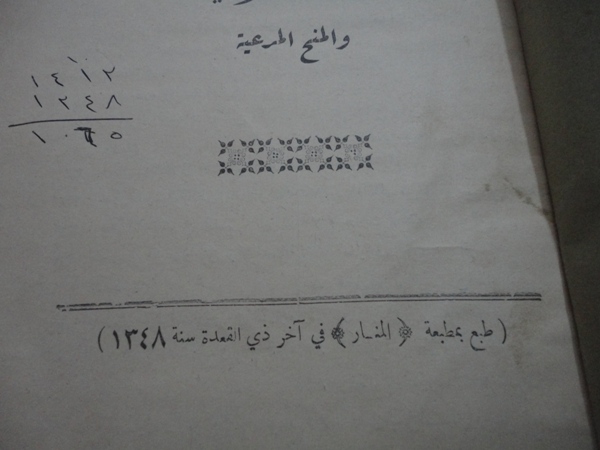 والمنح المرعية
١٤١٢
١٣٤٨
( طبع بمطبعة ﴿ المنار ﴾ في آخر ذي القعدة سنة ١٣٤٨ )